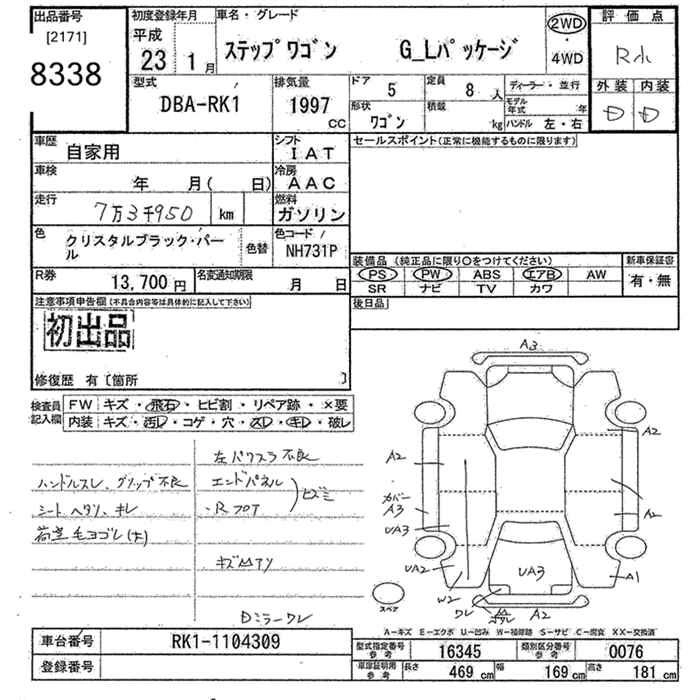 出品番号
[2171]
8338
初度登録年月
平成
23 1月
車名・グレード
ステップワゴン G_Lパッケージ
2WD
・
4WD
評価点
R小
外装 内装
D D
型式
DBA-RK1
排気量
1997
cc
ドア
5
定員
8 人
ディーラー・並行
形状
ワゴン
積載
kg
モデル年式 年
ハンドル 左・右
車歴
自家用
シフト
IAT
セールスポイント(正常に機能するものに限ります)
車検
年 月( 日)
冷房
AAC
走行
7万3千950 km
燃料
ガソリン
色
クリスタルブラック・パール
色替
色コード
NH731P
装備品(純正品に限り○をつけてください)
新車保証書
PS PW ABS エアB AW
有・無
SR ナビ TV カワ
R券
13,700円
名変通知期限
月 日
後日品
注意事項申告欄(不具合内容等は具体的に記入して下さい)
初出品
修復歴 有〔箇所 〕
検査員記入欄
FW キズ・飛石・ヒビ割・リペア跡・×要
内装 キズ・汚レ・コゲ・穴・スレ・キレ・破レ
左パワスラ不良
ハンドルスレ、グリップ不良
エンドパネル
シートヘタリ、キレ
・Rフロア
ヒズミ
荷室毛ヨゴレ(大)
Dミラーワレ
A3
A2
A2
カバー
A3
UA3
A2
UA2
W2
UA3
A1
ワレ
A2
スペア
A-キズ E-エクボ U-凹み W-補修跡 S-サビ C-腐食 XX-交換済
車台番号
RK1-1104309
登録番号
型式指定番号
参考
16345
類別区分番号
参考
0076
車庫証明用
参考
長さ
469 cm
幅
169 cm
高さ
181 cm